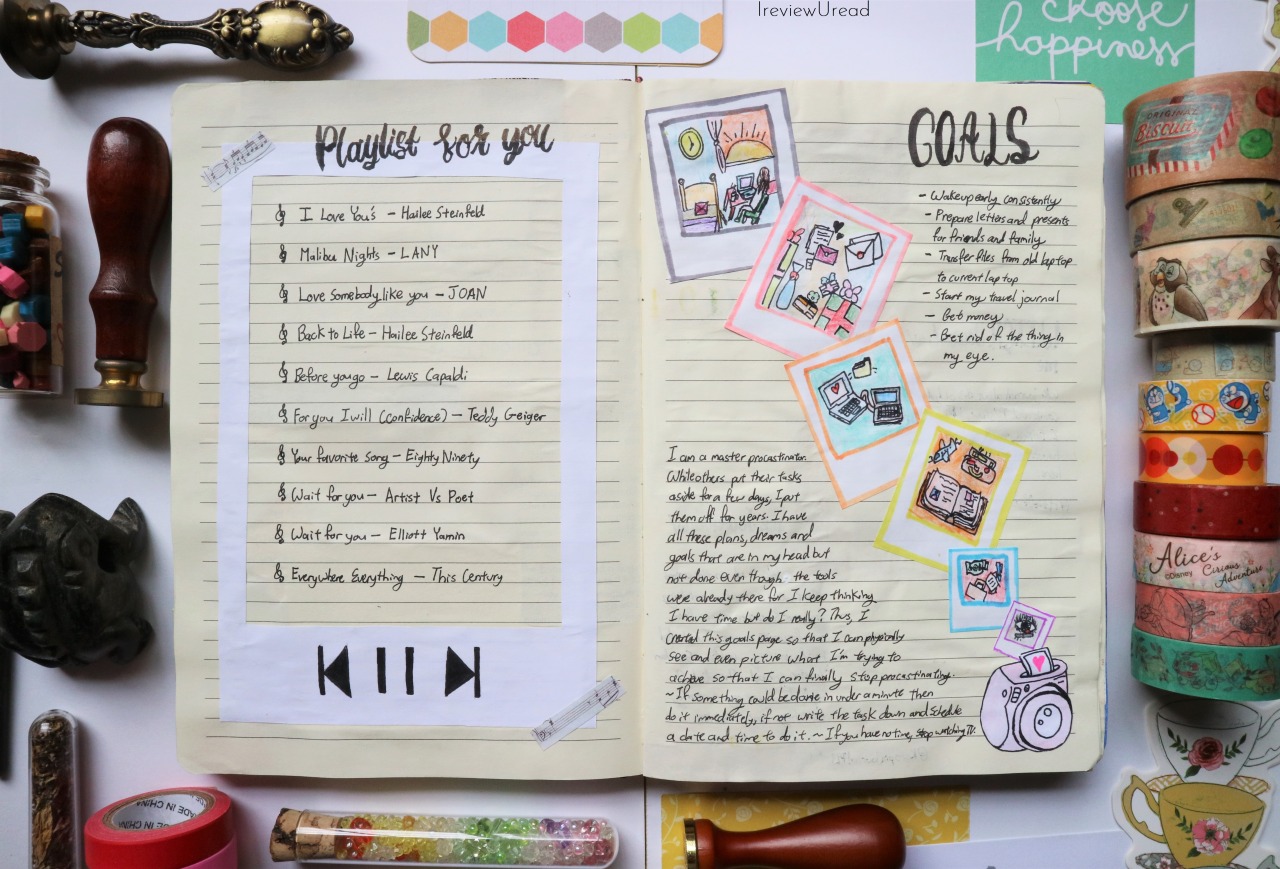 IreviewUread
choose
happiness
Playlist for you
I Love You's - Hailee Steinfeld
Malibu Nights - LANY
Love somebody like you - JOAN
Back to Life - Hailee Steinfeld
Before you go - Lewis Capaldi
For you I will (Confidence) - Teddy Geiger
Your favorite song - Eighty Ninety
Wait for you - Artist Vs Poet
Wait for you - Elliott Yamin
Everywhere Everything - This Century
GOALS
- Wake up early consistently
- Prepare letters and presents
for friends and family
- Transfer files from old laptop
to current laptop
- Start my travel journal
- Get money
- Get rid of the thing in
my eye.
I am a master procastinator.
While others put their tasks
aside for a few days, I put
them off for years. I have
all these plans, dreams and
goals that are in my head but
not done even though the tools
were already there for I keep thinking
I have time but do I really? Thus, I
created this goals page so that I can physically
see and even picture what I'm trying to
achieve so that I can finally stop procastinating.
~ If something could be done in under a minute then
do it immediately, if not write the task down and schedule
a date and time to do it. ~ If you have no time, stop watching TV.
ORIGINAL
Biscuit
Alice's
©Disney Curious
Adventure
MADE IN CHINA
MADE IN CHINA